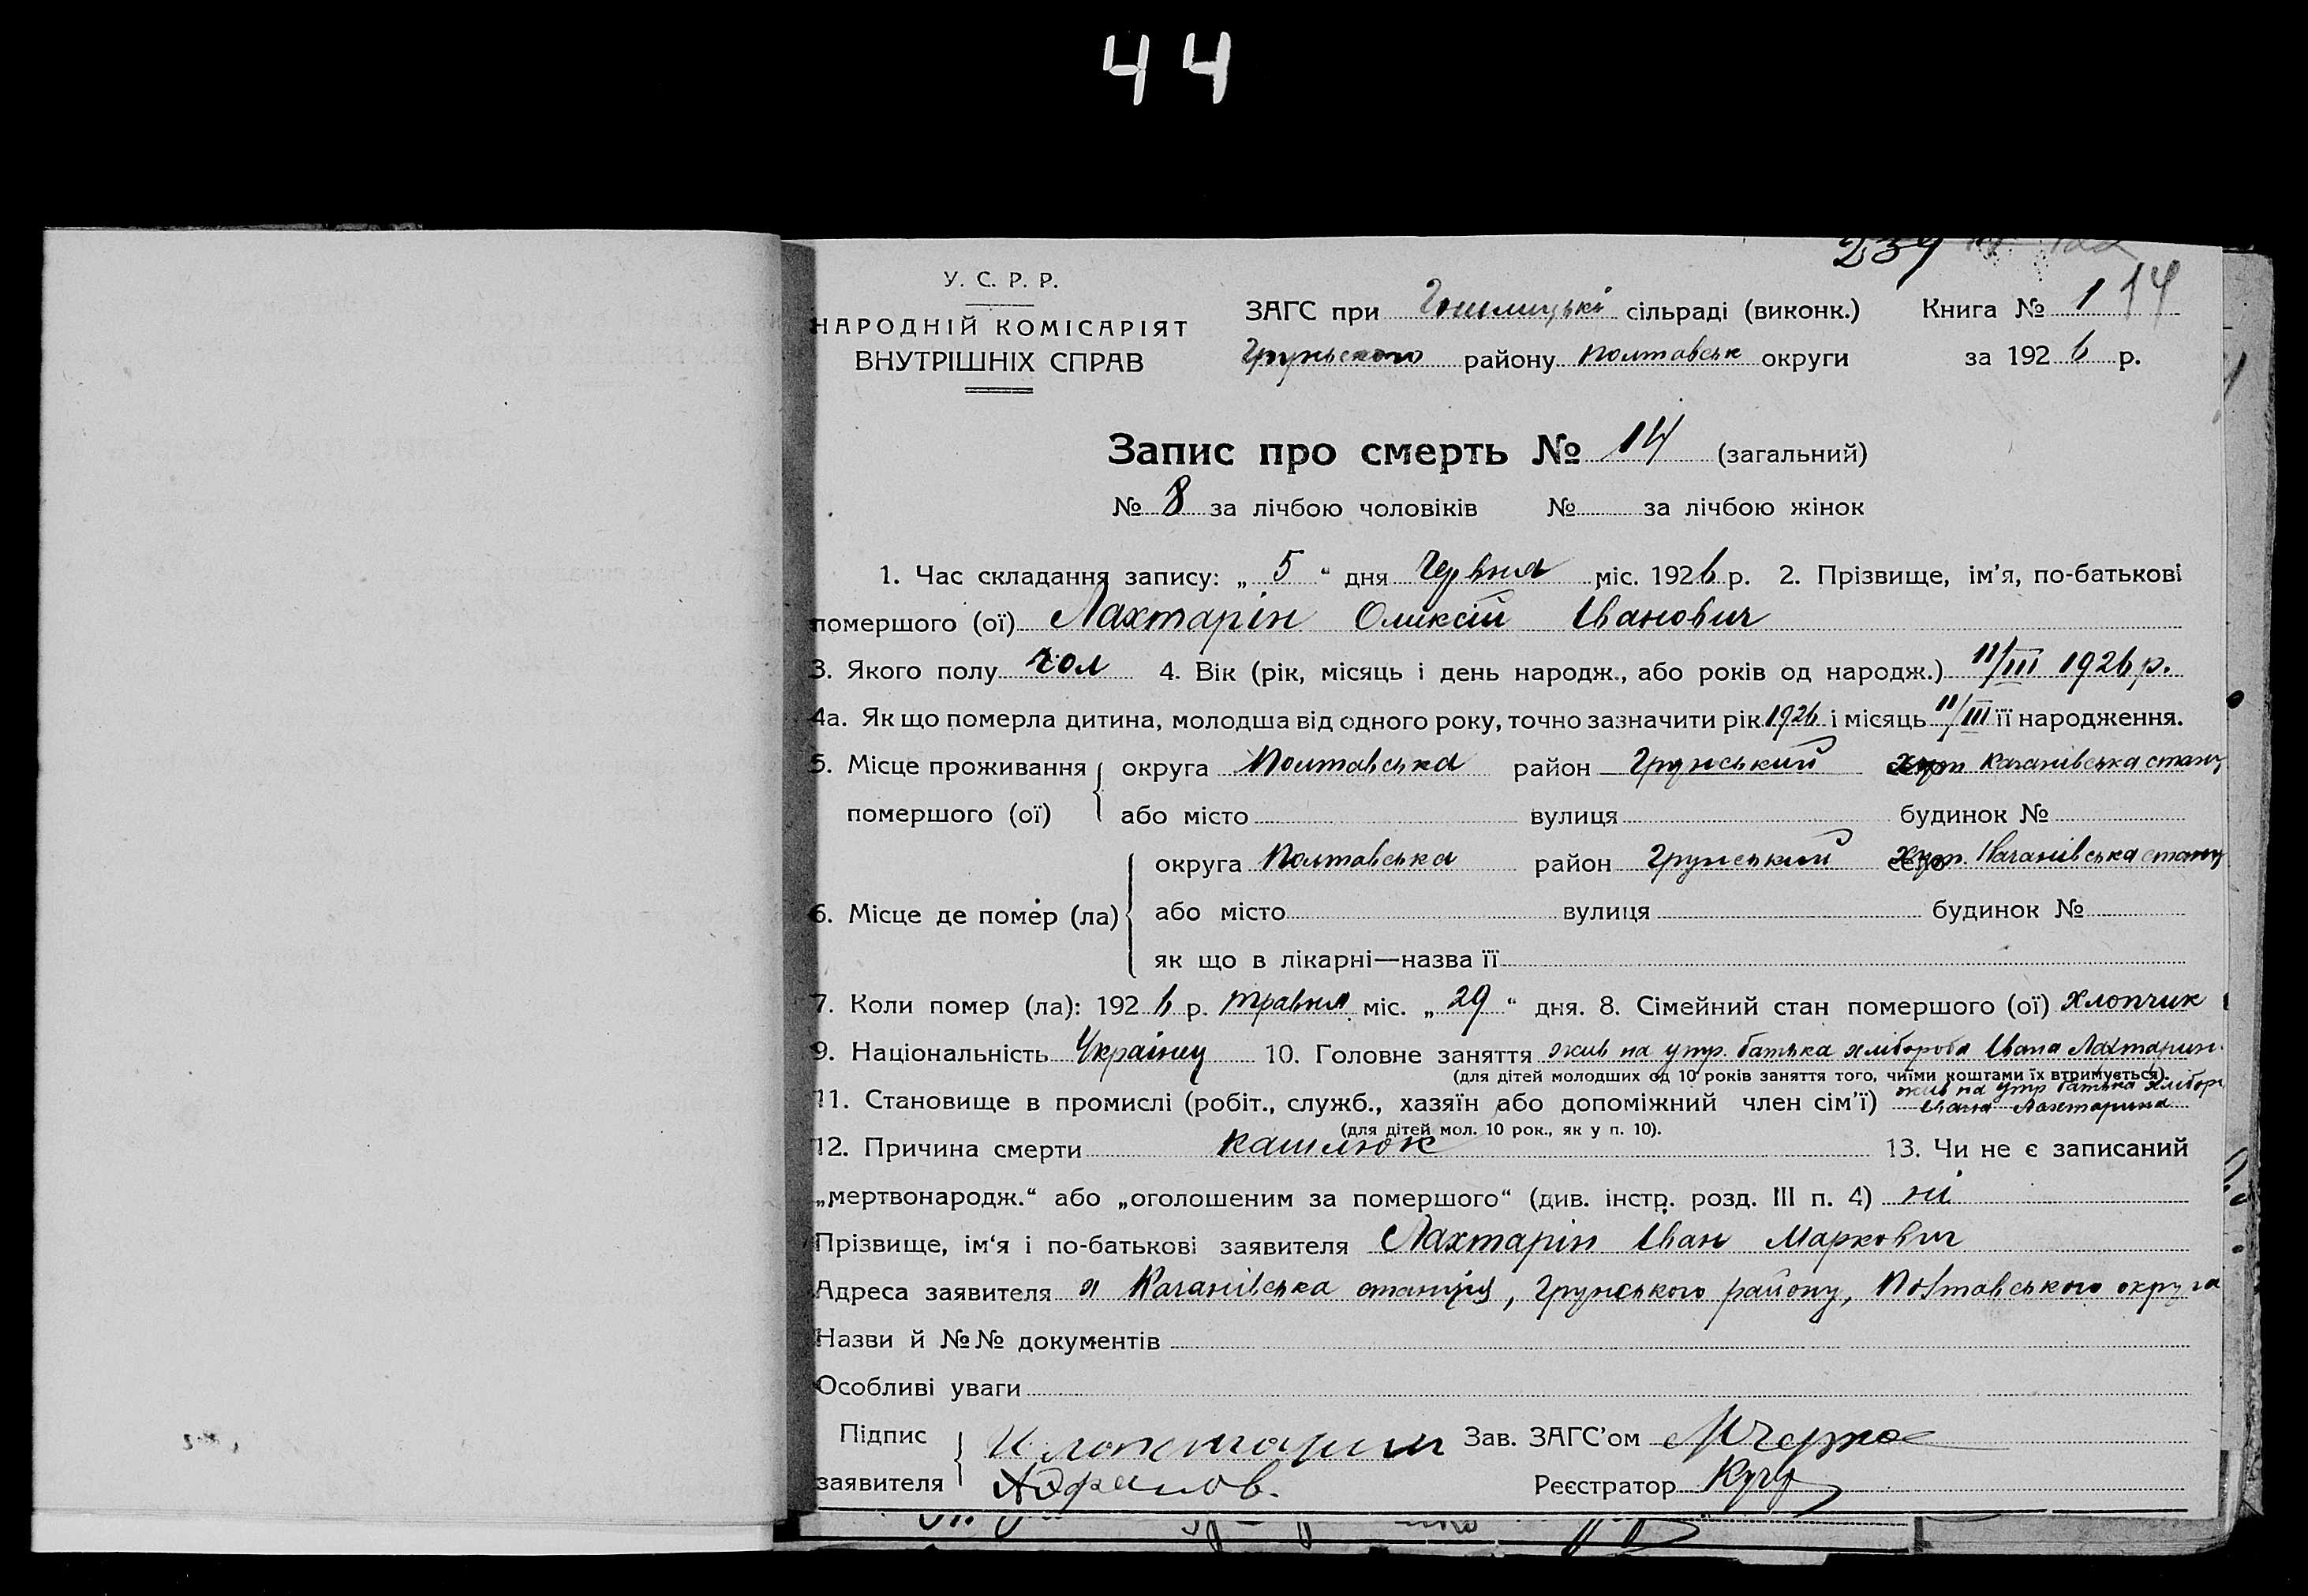 44
239
У. С. Р. Р.
НАРОДНІЙ КОМІСАРІЯТ
ВНУТРІШНІХ СПРАВ
ЗАГС при сільраді (виконк.) Книга № 1 14
Грунського району Полтавськ округи за 1926 р.
Запис про смерть № 14 (загальний)
№ 8 за лічбою чоловіків № за лічбою жінок
1. Час складання запису: „ 5 “ дня Червня міс. 1926 р. 2. Прізвище, ім’я, по-батькові
помершого (ої) Лахтарін Оликсій Іванович
3. Якого полу чол 4. Вік (рік, місяць і день народж., або років од народж.) 11/III 1926 р.
4а. Як що померла дитина, молодша від одного року, точно зазначити рік 1926 і місяць 11/III її народження.
5. Місце проживання округа Полтавська район Грунський хут Качанівська станц
помершого (ої) або місто вулиця будинок №
округа Полтавська район Грунський село хут. Качанівська станц
6. Місце де помер (ла) або місто вулиця будинок №
як що в лікарні—назва її
7. Коли помер (ла): 1926 р. травня міс. „ 29 “ дня. 8. Сімейний стан помершого (ої) хлопчик
9. Національність Українец 10. Головне заняття жив на утр. батька хлібороба Івана Лахтарин
(для дітей молодших од 10 років заняття того, чиїми коштами їх втримується).
11. Становище в промислі (робіт., служб., хазяїн або допоміжний член сім’ї) жив на утр батька хлібор
Івана Лахтарина
(для дітей мол. 10 рок., як у п. 10).
12. Причина смерти кашлюк 13. Чи не є записаний
„мертвонародж.“ або „оголошеним за помершого“ (див. інстр. розд. III п. 4) ні
Прізвище, ім‘я і по-батькові заявителя Лахтарін Іван Маркович
Адреса заявителя Качанівська станція, Грунського району, Полтавського округа
Назви й №№ документів
Особливі уваги
Підпис И Лахтарин Зав. ЗАГС’ом
заявителя Реєстратор